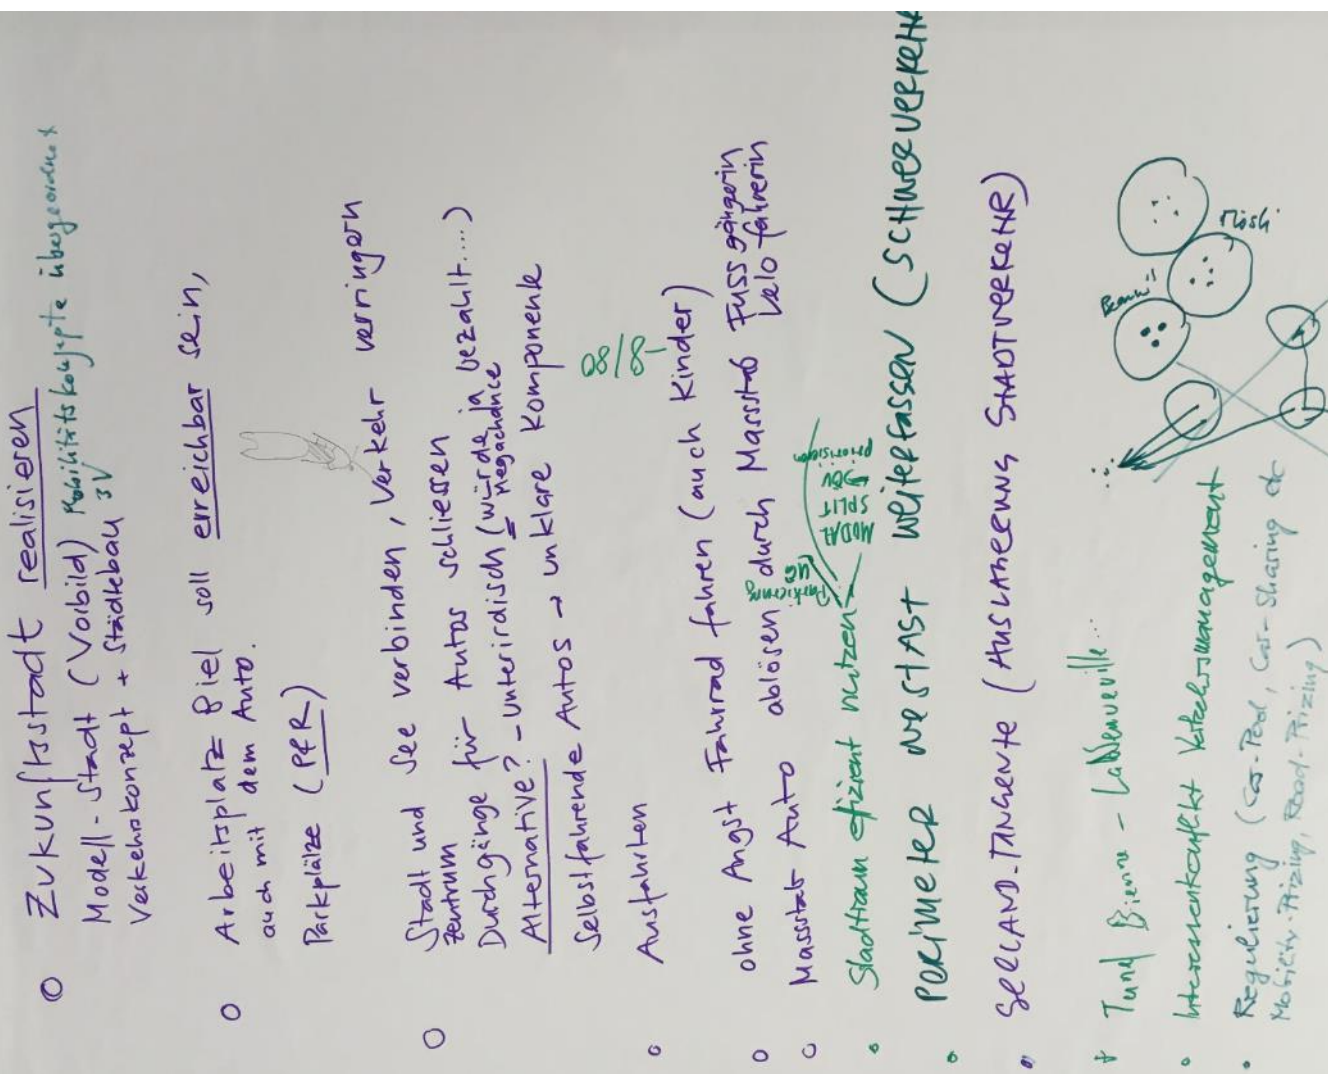 Zukunftsstadt realisieren
Modell-Stadt (Vorbild) Mobilitätskonzepte übergeordnet
Verkehrskonzept + Städtebau 3V
Arbeitsplatz Biel soll erreichbar sein,
auch mit dem Auto.
Parkplätze (P&R)
Stadt und See verbinden, Verkehr verringern
zentrum
Durchgänge für Autos schliessen
Alternative? - unterirdisch (würde ja bezahlt....)
Megachance
Selbstfahrende Autos → unklare Komponente
Ausfahrten
08/8-
ohne Angst Fahrrad fahren (auch Kinder)
Massstab Auto ablösen durch Massstab Fussgängerin
Velofahrerin
Stadtraum efizient nutzen
Parkierung
UG
MODAL
SPLIT
→ ÖV
priorisieren
PERIMETER WESTAST WEITERFASSEN (SCHWERVERKEHR
SEELAND-TANGENTE (AUSLAGERUNG STADTVERKEHR)
+ Tunel Bienne - LaNeuveville...
Interessenkonflikt Verkehrsmanagement
Regulierung (Car-Pool, Car-Sharing etc
Mobility-Prizing, Road-Prizing)
Mösli